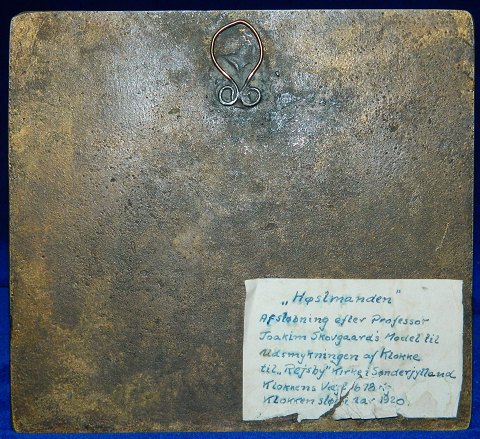 „Høstmanden"
Afstøbning efter Professor
Joakim Skovgaard's Model til
Udsmykningen af Klokke
til „Rejsby" Kirke i Sønderjylland
Klokkens Vægt 1678
Klokken støbt i 1920